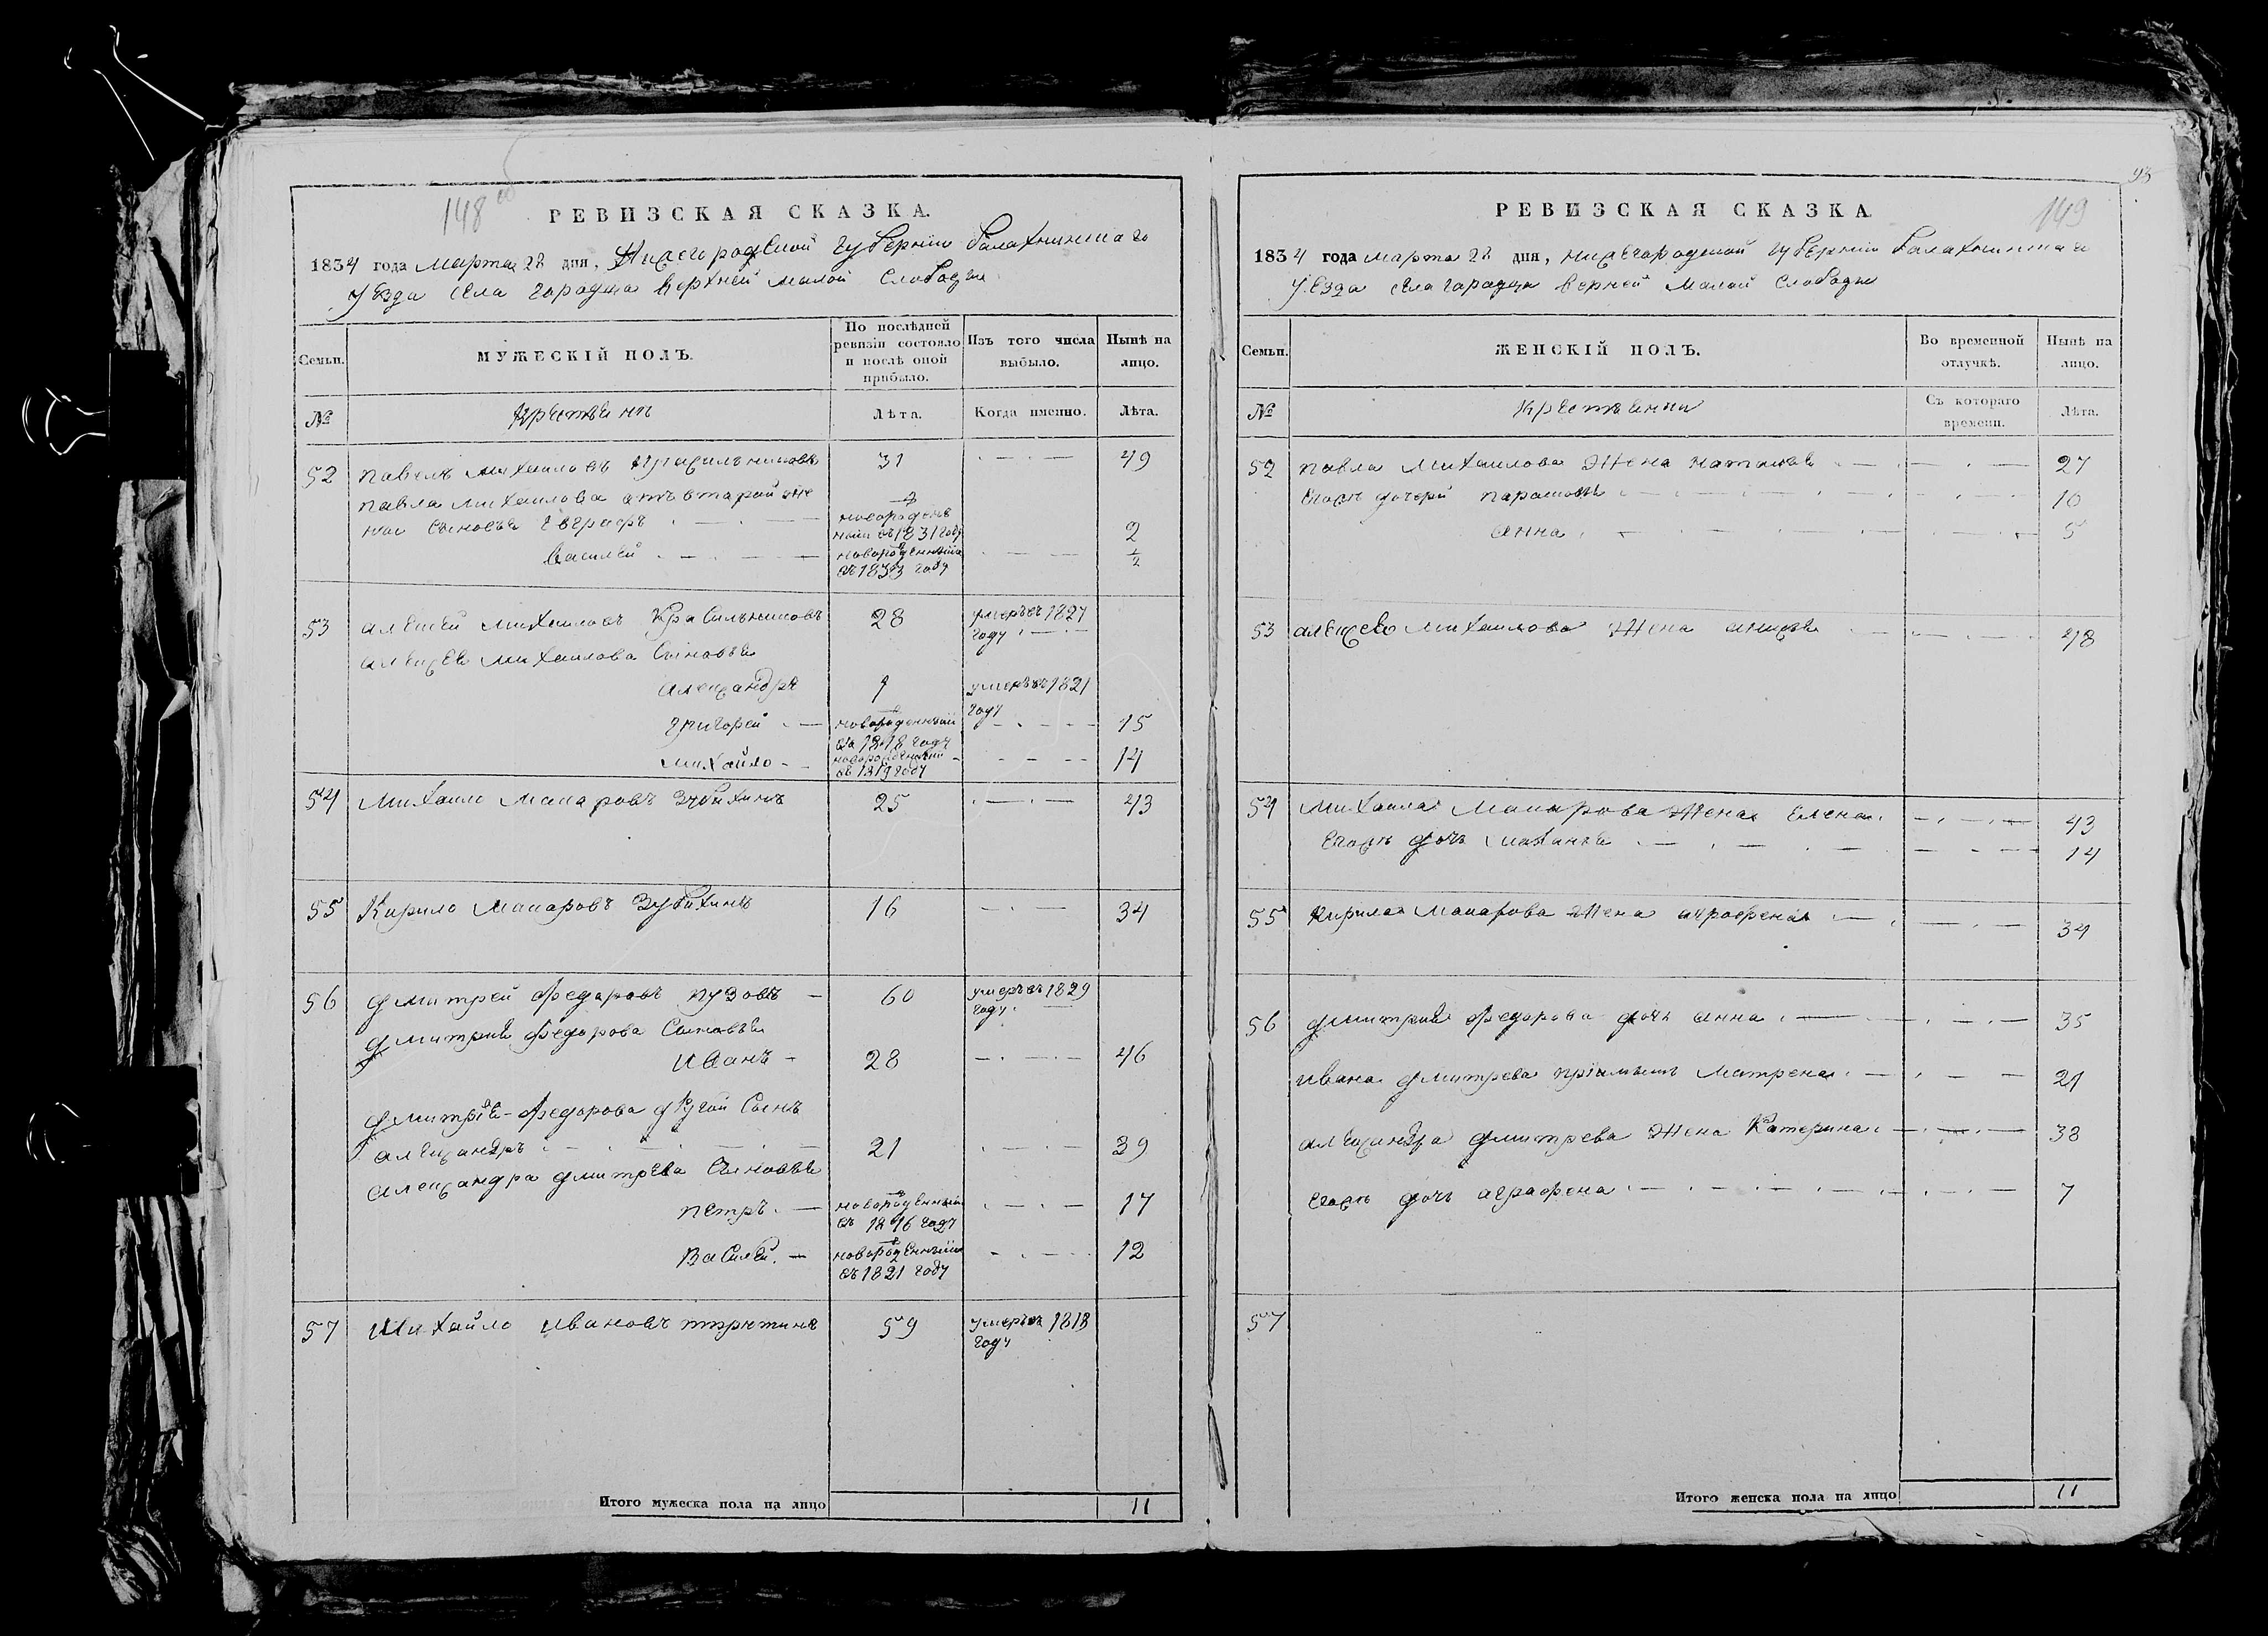 148 об
РЕВИЗСКАЯ СКАЗКА.
1834 года Марта 22 дня, Нижегородской губернiи Балахнинскаго
уѣзда села городца верхней малой слободы
Семьи.
МУЖЕСКІЙ ПОЛЪ.
По послѣдней ревизіи состояло и послѣ оной прибыло.
Изъ того числа выбыло.
Нынѣ на лицо.
№
Крестьянъ
Лѣта.
Когда именно.
Лѣта.
52 павелъ михаиловъ Красильниковъ 31 49
павла михаилова отъ второй же
ны сыновья Евграфъ новорожден ный въ 1831 году 2
василей новорожденный въ 1833 году 1/2
53 алексей михаиловъ Красильниковъ 28 умеръ въ 1827 году
алексея михаилова сыновья
александръ 1 умеръ въ 1821 году
григорей новорожденный въ 1818 году 15
михайло новорожденный въ 1819 году 14
54 михаило макаровъ зубихинъ 25 43
55 Кирило макаровъ зубихинъ 16 34
56 дмитрей федоровъ пузовъ 60 умеръ въ 1829 году
дмитрия федорова сыновья
иванъ 28 46
дмитрiя федорова другой сынъ
александръ 21 39
александра дмитрева сыновья
петръ новорожденный въ 1816 году 17
василей новорожденный въ 1821 году 12
57 михайло ивановъ тюрютинъ 59 умеръ въ 1818 году
Итого мужеска пола на лицо 11
93
149
РЕВИЗСКАЯ СКАЗКА
1834 года марта 22 дня, нижегородской губернiи балахнинскаго
уѣзда села городца верней малой слободы
Семьи.
ЖЕНСКІЙ ПОЛЪ.
Во временной отлучкѣ.
Нынѣ на лицо.
№
крестьянки
Съ котораго времени.
Лѣта.
52 павла михаилова жена наталья 27
Егожъ дочери парасковья 10
анна 5
53 алексея михаилова жена анисья 48
54 михаила макарова жена Елена 43
Егожъ дочь 14
55 кирила макарова жена аграфена 34
56 дмитрия федорова дочь анна 35
ивана дмитрева прiимышъ матрена 21
александра дмитрева жена Катерина 38
Егожъ дочь аграфена 7
57
Итого женска пола на лицо 11